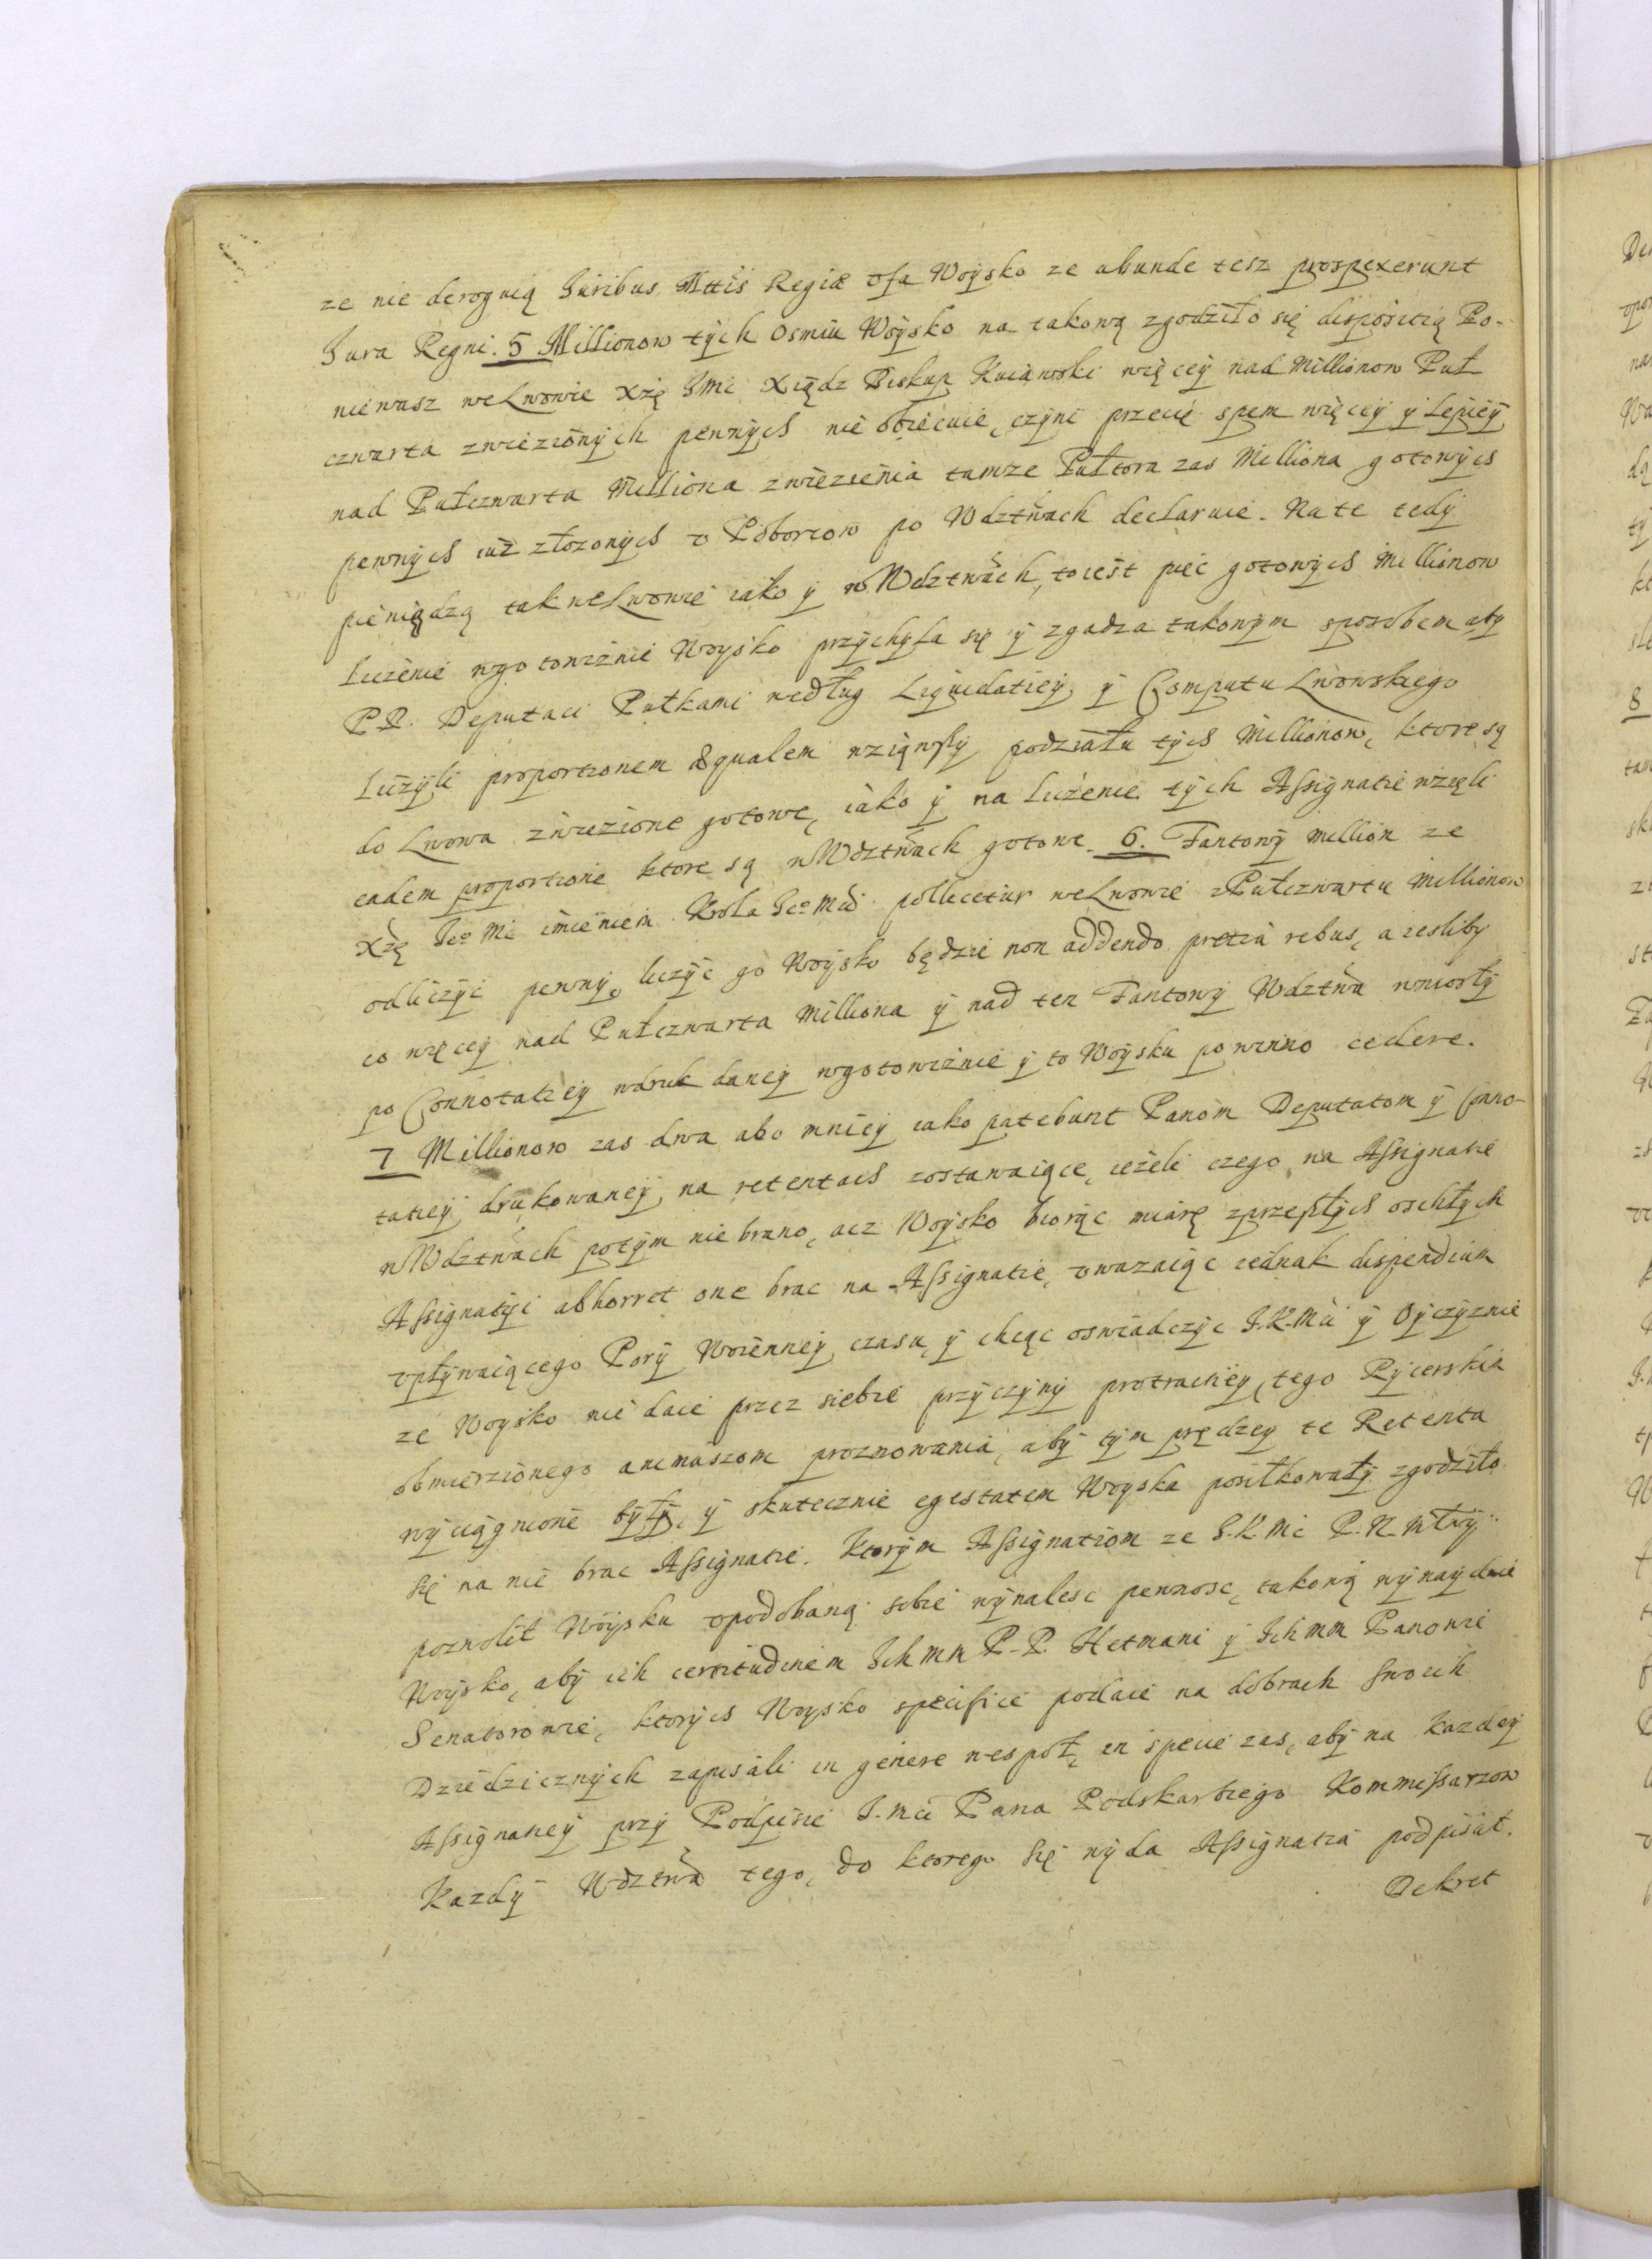 ze nie deroguią Juribus Mttis Regiæ ufa Woysko ze abunde tesz prospexerunt
Jura Regni. 5 Millionow tych Osmiu Woysko na takową zgodziło się disposicią Po-
niewasz we Lwowie Xżę JMć Xiądz Biskup Kuiawski więcey nad Millionow Puł
czwarta zwiezionych pewnych nie obiecuie, czyni przecię spem więcey y lepiey
nad Pułczwarta Milliona zwiezienia tamze Pułtora zas Milliona gotowych
pewnych iuż złozonych v Poborcow po Wdztwach declaruie. Na te tedy
pieniądzą tak we Lwowie iako y w Wdztwach, to iest pięć gotowych Millionow
liczenie w gotowiznie Woysko przychyla się y zgadza takowym sposobem aby
PP. Deputaci Pułkami według Liquidatiey y Computu Lwowskiego
liczyli proportionem æqualem wziąwszy podziału tych Millionow, ktore są
do Lwowa zwiezione gotowe, iako y na liczenie tych Assignatie wzięli
eadem proportione ktore są w Wdztwach gotowe. 6. Fantowy million ze
Xżę Jeo Mć imieniem Krola Jeo Mći pollicetur we Lwowie z Pułczwartu Millionow
odliczyć pewny, liczyć go Woysko będzie non addendo pretia rebus, a iesliby
co więcey nad Pułczwarta Milliona y nad ten Fantowy Wdztwa wniosły
po Connotatiey w druk daney w gotowiznie y to Woysku powinno cedere.
7 Millionow zas dwa abo mniey iako patebunt Panom Deputatom y Cono-
tatiey drukowaney, na retentach zostawaiące, ieżeli czego na Assignatie
w Wdztwach potym nie brano, acz Woysko biorąc miarę z przeszłych oschłych
Assignatyi abhorret one brac na Assignatie, uwazaiąc iednak dispendium
upływaiącego Pory Woienney czasu, y chcąc oswiadczyc J.K.Mći y Oyczyznie
ze Woysko nie daie przez siebie przyczyny protractiey, tego Rycerskim
obmierzionego animuszom proznowania, aby tym prędzey te Retenta
wyciągnione były, y skutecznie egestatem Woyska posiłkowały zgodziło
się na nie brac Assignatie. Ktorym Assignatiom ze J.K.Mć P.N.Młwy
pozwolił Woysku upodobaną sobie wynalesc pewnosc, takową wynayduie
Woysko, aby ich certitudinem Ichmm P.P. Hetmani y Ichmm Panowie
Senatorowie, ktorych Woysko specifice podaie na dobrach swoich
Dziedzicznych zapisali in genere wespoł, in specie zas, aby na kazdey
Assignatiey przy Podpisie J.Mći Pana Podskarbiego Kommissarzow
Kazdy Wdztwa tego, do ktorego się wyda Assignatia podpisał.
Dekret